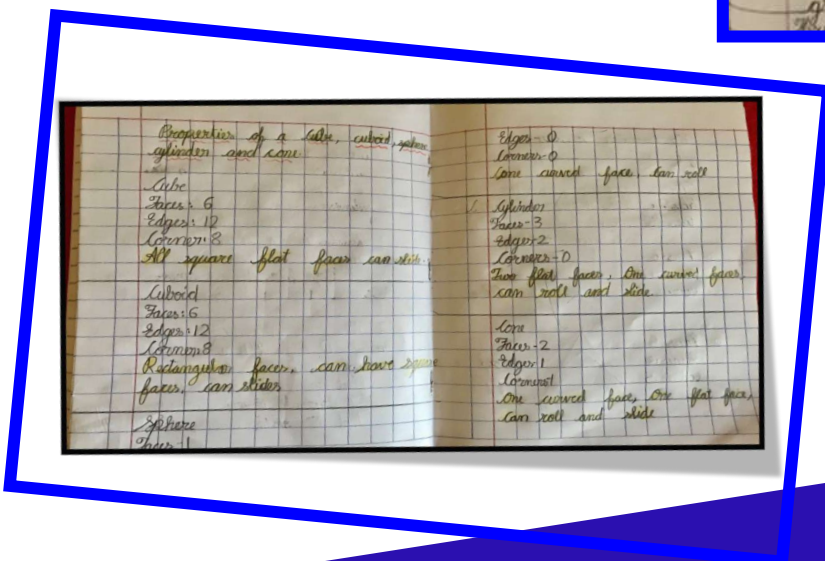 Properties of a cube, cuboid, sphere
cylinder and cone
Cube
Faces: 6
Edges: 12
Corner: 8
All square flat faces can slide
Cuboid
Faces: 6
Edges: 12
Corner 8
Rectangular faces, can have square
faces, can slides
Sphere
Faces-1
Edges-0
Corners-0
One curved face, Can roll
Cylinder
Faces-3
Edges-2
Corners-0
Two flat faces, One curved faces,
can roll and slide
Cone
Faces-2
Edges-1
Corners 1
One curved face, One flat face,
Can roll and slide